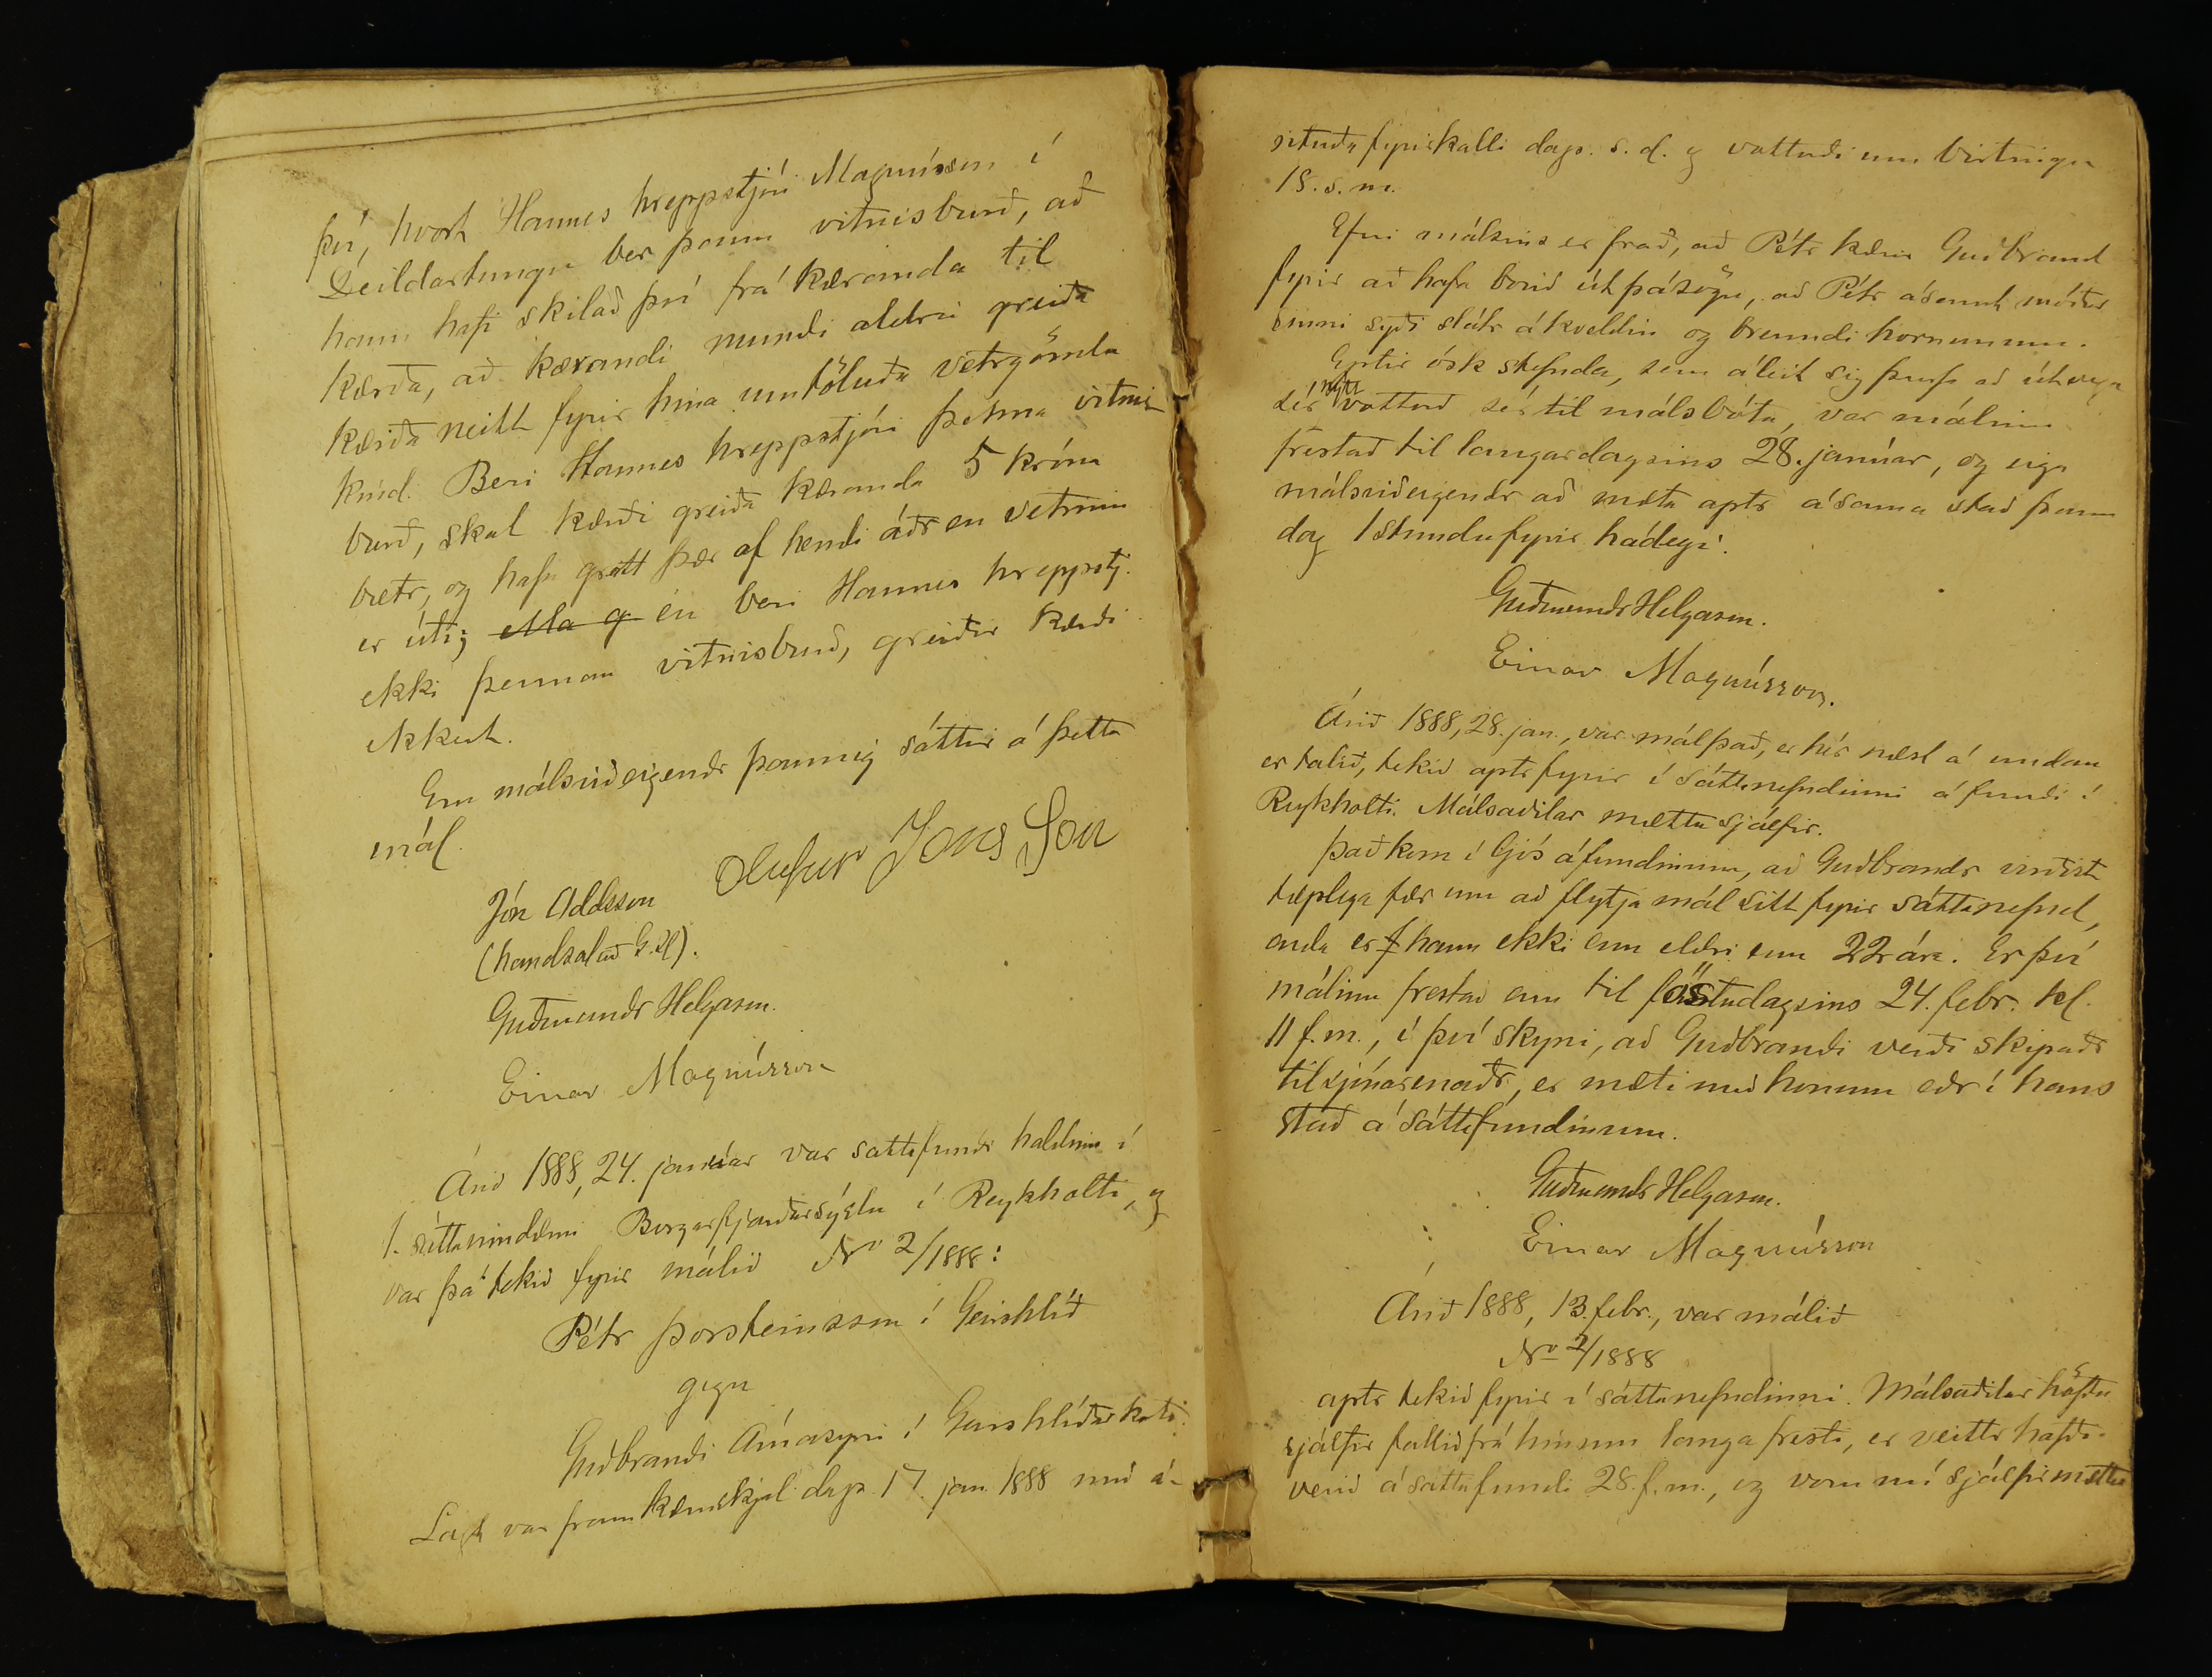 því, hvort Hannes hreppstjóri Magnússon í
Deildartungu ber þann vitnisburð, að
hann hafi skilað því frá kæranda til
kærða, að kærandi mundi aldrei greiða
kærða neitt fyrir hina umtöluðu vetrgömlu
kind. Beri Hannes hreppstjóri þenna vitnis-
burð, skal kærði greiða kæranda 5 króna
bætr, og hafa greitt þær af hendi áðr en vetrinn
er úti; en beri Hannes hreppstj.
ekki þennan vitnisburð, greiðir kærði
ekkert.
Eru málsviðeigendr þannig sáttir á þetta
mál.
Jón Oddsson Olufur Jons Son
(handsalað G.H).
Guðmundr Helgason.
Einar Magnússon
Árið 1888, 24. janúar var sáttafundr haldinn í
1. sáttaumdæmi Borgarfjarðarsýslu í Reykholti, og
var þá tekið fyrir málið No 2/1888:
Pétr Þorsteinsson í Geirshlíð
gegn
Guðbrandi Árnasyni í Geirshlíðarkoti.
Lagt var fram kæruskjal dags. 17. jan. 1888 með á-
rituðu fyrirkalli dags. s. d. og vottuðri um birtingu
18. s. m.
Efni málsins er það, að Pétr kærir Guðbrand
fyrir að hafa borið út þá sögu, að Pétr ásamt móður
sinni syði slátr á kveldin og brenndi hornunum.
Eptir ósk stefnda, sem áleit sig þurfa að útvega
sér vottorð sér til málsbóta, var málinu
frestað til laugardagsins 28. janúar, og eiga
málsviðeigendr að mæta aptr á sama stað þann
dag 1 stundu fyrir hádegi.
Guðmundr Helgason.
Einar Magnússon.
Árið 1888, 28. jan., var mál það, er hér næst á undan
er talið, tekið aptr fyrir í sáttanefndinni á fundi í
Reykholti. Málsaðilar mættu sjálfir.
Það kom í ljós á fundinum, að Guðbrandr virðist
tæplega fær um að flytja mál sitt fyrir sáttanefnd,
enda er hann ekki enn eldri enn 22 ára. Er því
málinu frestað enn til föstudagsins 24. febr. kl.
11 f.m., í því skyni, að Guðbrandi verði skipaðr
tilsjónarmaðr, er mæti með honum eðr í hans
stað á sáttafundinum.
Guðmundr Helgason.
Einar Magnússon
Árið 1888, 13. febr., var málið
No 2/1888
aptr tekið fyrir í sáttanefndinni. Málsaðilar höfðu
sjálfir fallið frá hinum langa fresti, er veittr hafði
verið á sáttafundi 28. f. m., og voru nú sjálfir mættir